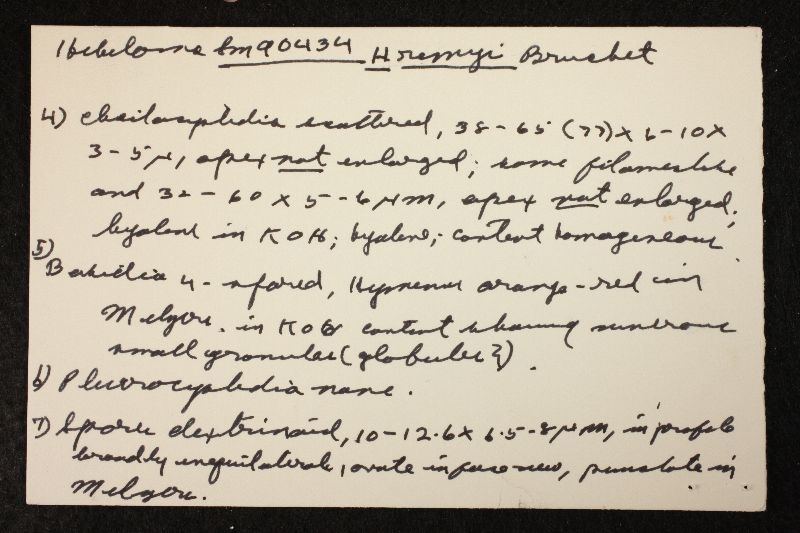 Hebeloma Sm90434 H remyi Bruchet
4) Cheilocystidia scattered, 38-65 (77) x 6-10 x
3-5 µ, apex not enlarged; some filamentose
and 32-60 x 5-6 µm, apex not enlarged;
hyaline in KOH; hyaline; content homogeneous.
5) Basidia 4-spored, Hymenium orange-red in
Melzers. in KOH content showing numerous
small granules (globules?).
6) Pleurocystidia none.
7) Spores dextrinoid, 10-12.6 x 6.5-8 µm, in profile
broadly inequilateral, ovate in face-view, punctate in
Melzers.